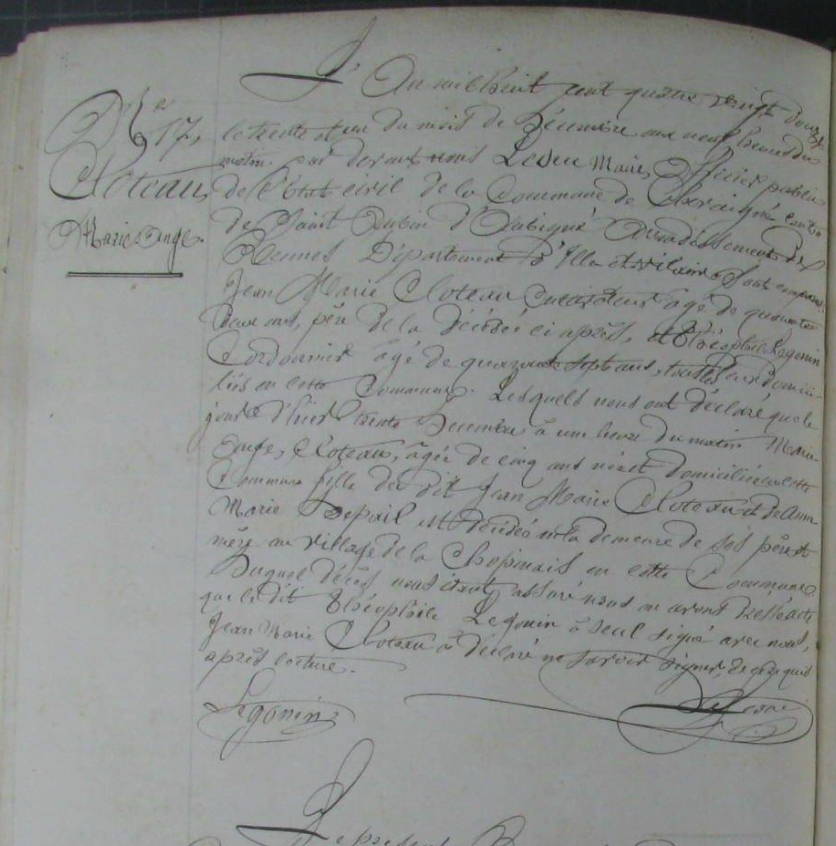 L'An mil huit cent quatre vingt douze
Dés
17,
le trente et un du mois de Décembre aux neuf heures du
Cloteau,
matin. par devant nous Maire, Officier public
de l'état civil de la Commune de Chevaigné canton
Marie Ange.
de Saint Aubin d'Aubigné arrondissement de
Rennes Département d'Ille et Vilaine Sont comparus
Jean Marie Cloteau Cultivateur âgé de quarante
deux ans, père de la décédée ci après, et Théophile Legonin
Cordonnier âgé de quarante sept ans, tous les deux domici-
liés en cette Commune. Lesquels nous ont déclaré que le
jour d'hier trente Décembre à une heure du matin Marie
Ange, Cloteau, âgée de cinq ans née et domiciliée en cette
Commune fille du dit Jean Marie Cloteau et de Anne
Marie Depail est décédée en la demeure de ses père et
mère au village de la Chopinais en cette Commune.
Duquel décès nous étant assuré nous en avons dressé acte
que le dit Théophile Legonin à seul signé avec nous,
Jean Marie Cloteau à déclaré ne savoir signer, de ce requis
après lecture.
Legonin
Le présent